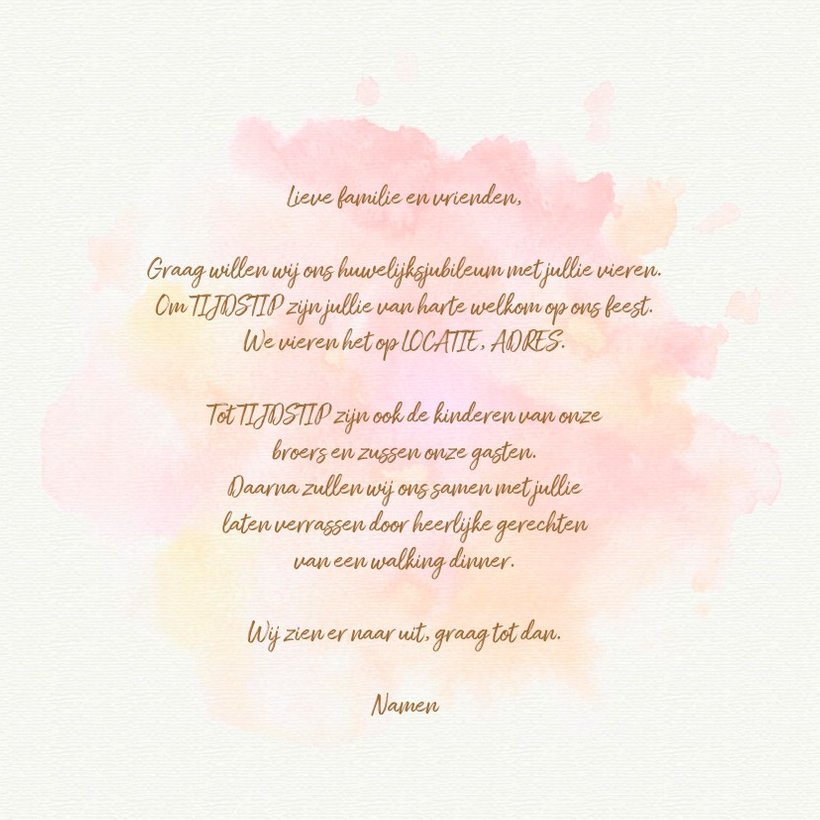 Lieve familie en vrienden,
Graag willen wij ons huwelijksjubileum met jullie vieren.
Om TIJDSTIP zijn jullie van harte welkom op ons feest.
We vieren het op LOCATIE, ADRES.
Tot TIJDSTIP zijn ook de kinderen van onze
broers en zussen onze gasten.
Daarna zullen wij ons samen met jullie
laten verrassen door heerlijke gerechten
van een walking dinner.
Wij zien er naar uit, graag tot dan.
Namen